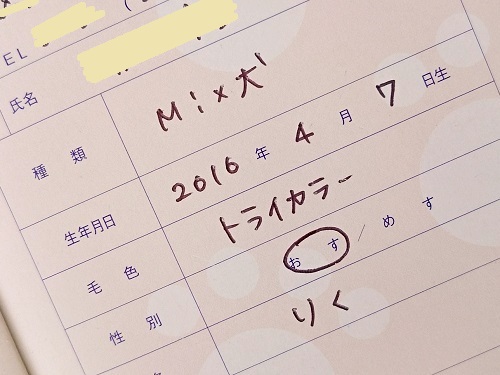 EL
氏名
種 類 Mix犬
生年月日 2016 年 4 月 7 日生
毛 色 トライカラー
性 別 おす / めす
りく